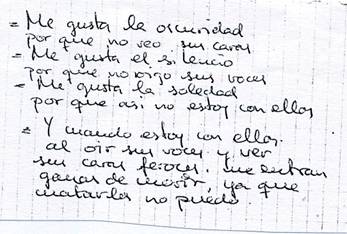 = Me gusta la oscuridad
por que no veo sus caras
= Me gusta el silencio
por que no oigo sus voces
= Me gusta la soledad
por que asi no estoy con ellas
= Y cuando estoy con ellas.
al oir sus voces y ver
sus caras feroces. me entran
ganas de morir, ya que
matarlas no puedo.